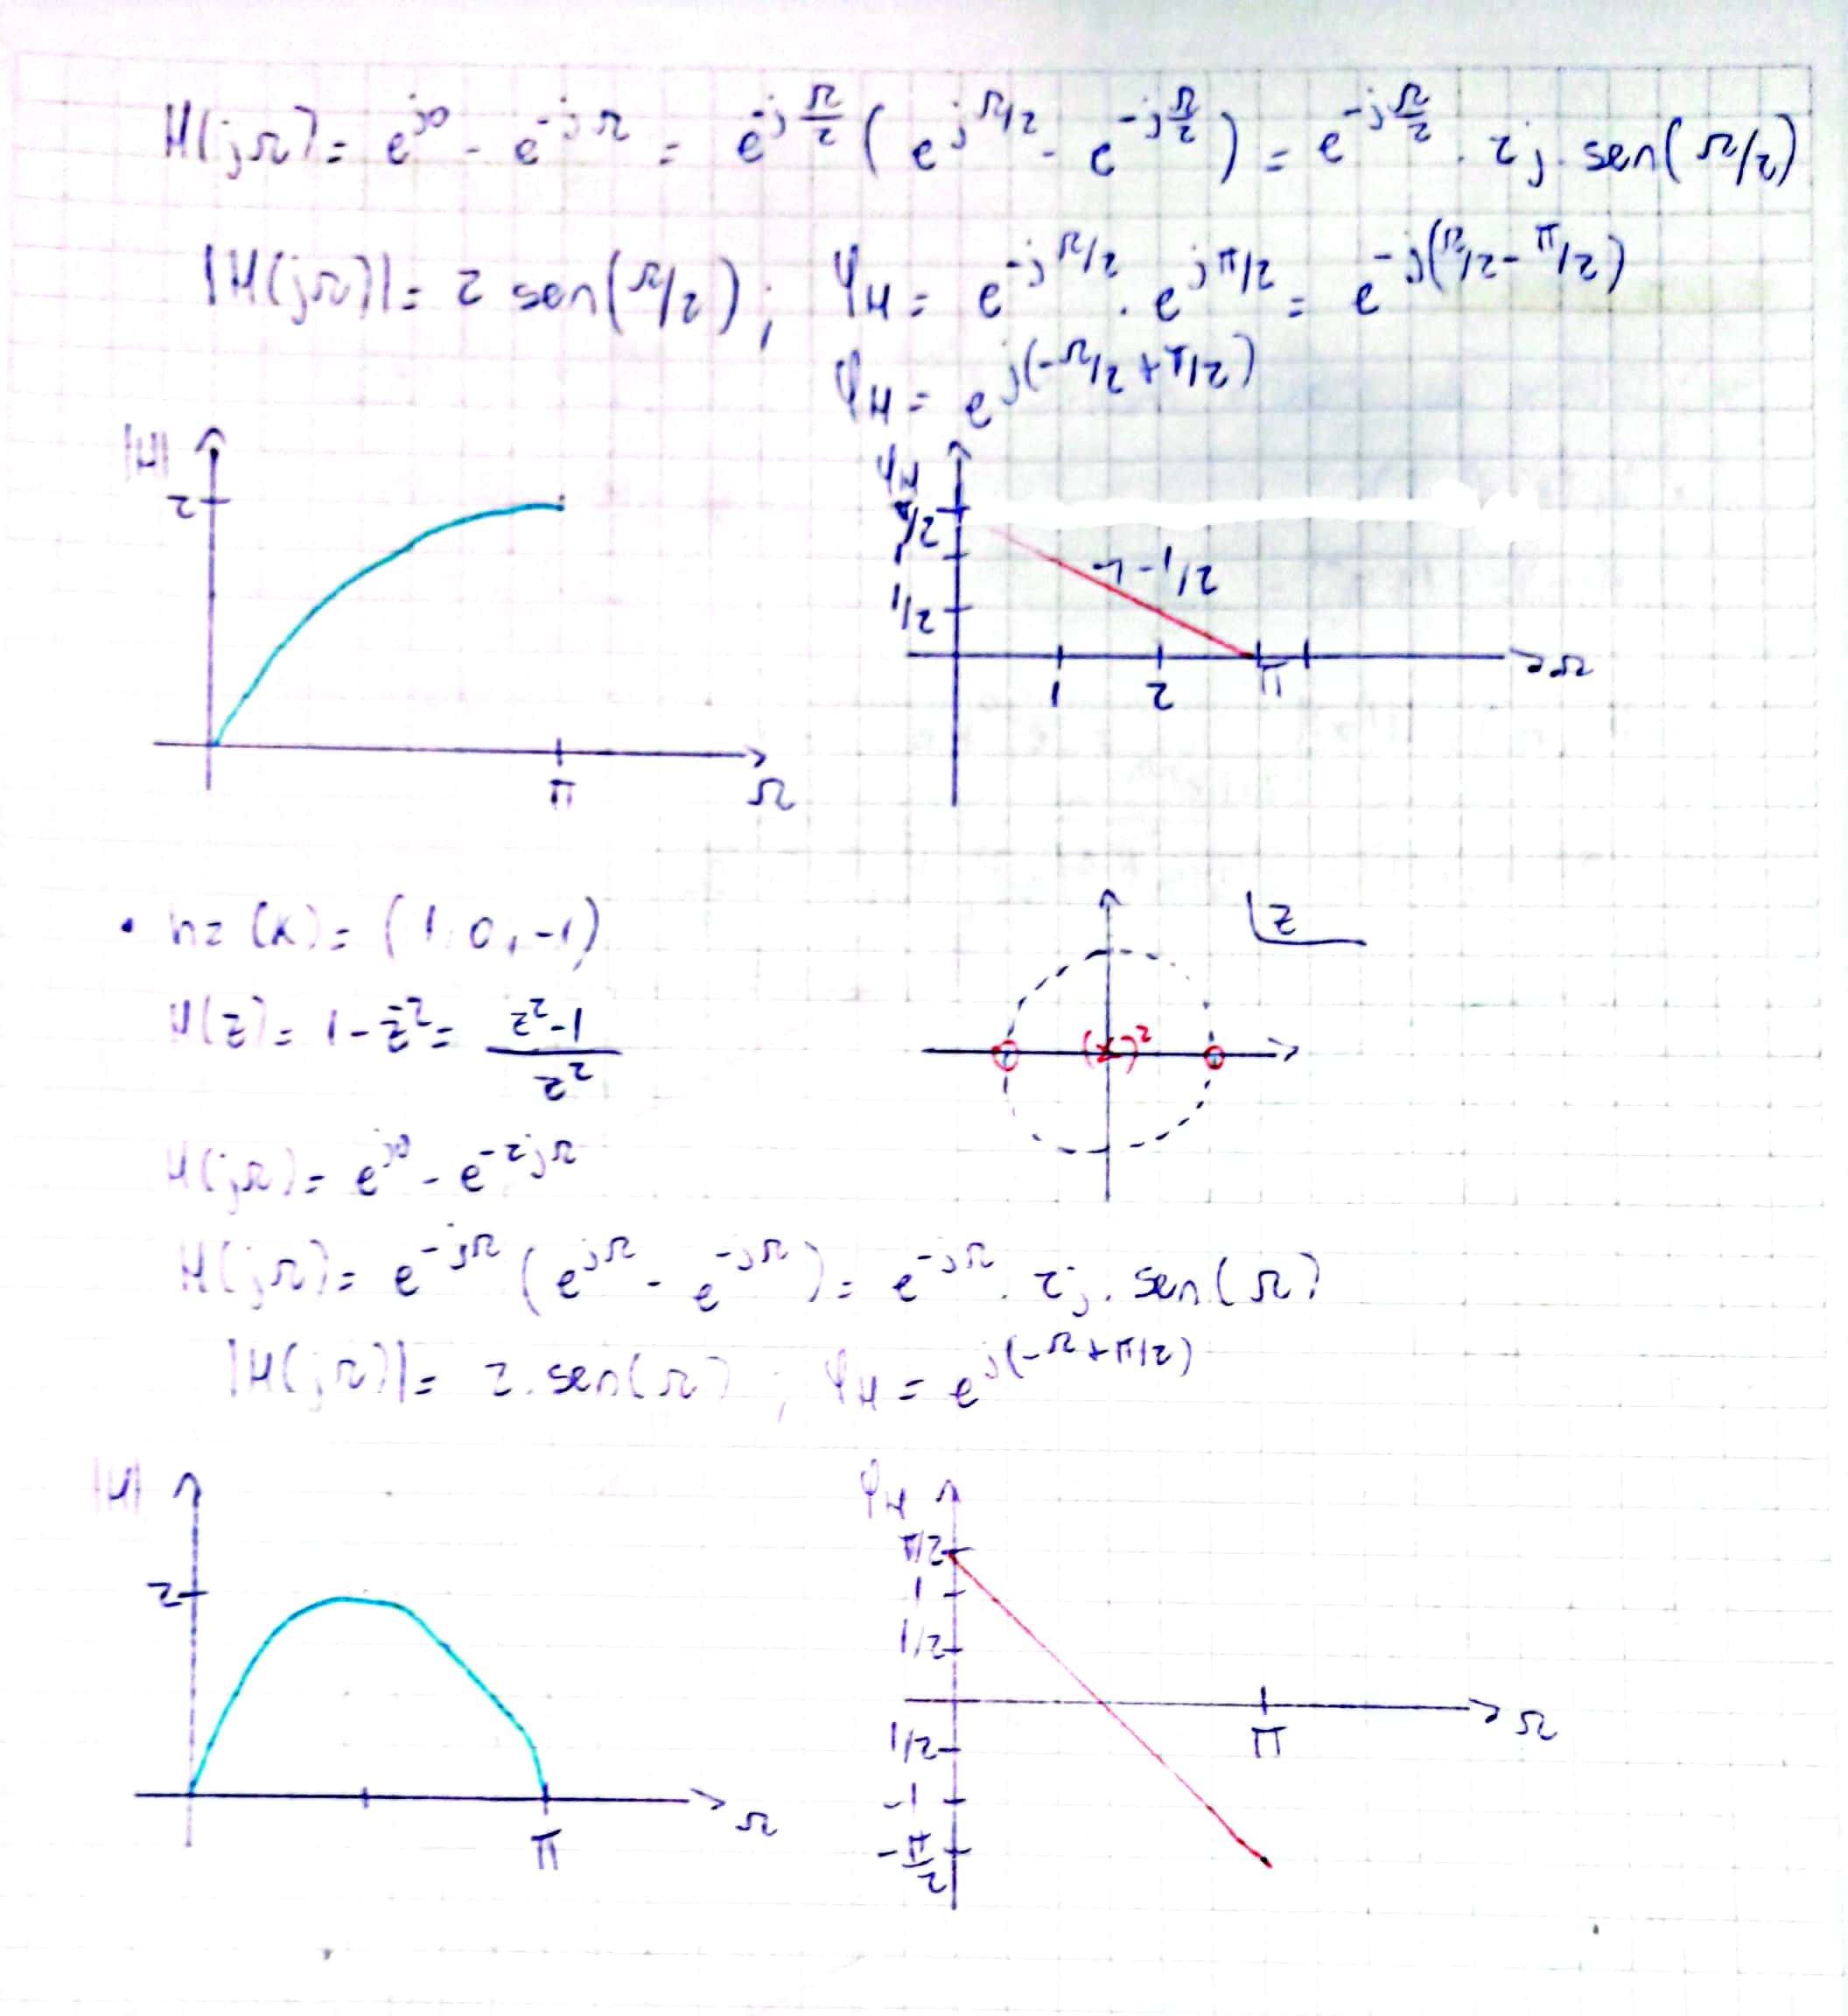 H(jΩ) = e^{j0} - e^{-jΩ} = e^{-jΩ/2} ( e^{jΩ/2} - e^{-jΩ/2} ) = e^{-jΩ/2} . 2j . sen(Ω/2)
|H(jΩ)| = 2 sen(Ω/2) ; φ_H = e^{-jΩ/2} . e^{jπ/2} = e^{-j(Ω/2 - π/2)}
φ_H = e^{j(-Ω/2 + π/2)}
|H|
2
π
Ω
φ_H
π/2
1
1/2
-1/2
1 2 π
Ω
• h2(k) = (1, 0, -1)
H(z) = 1 - z^{-2} = (z^2 - 1)/z^2
z
(x)^2
H(jΩ) = e^{j0} - e^{-2jΩ}
H(jΩ) = e^{-jΩ} ( e^{jΩ} - e^{-jΩ} ) = e^{-jΩ} . 2j . sen(Ω)
|H(jΩ)| = 2 . sen(Ω) ; φ_H = e^{j(-Ω + π/2)}
|H|
2
π
Ω
φ_H
π/2
1
1/2
π
Ω
1/2
-1
-π/2